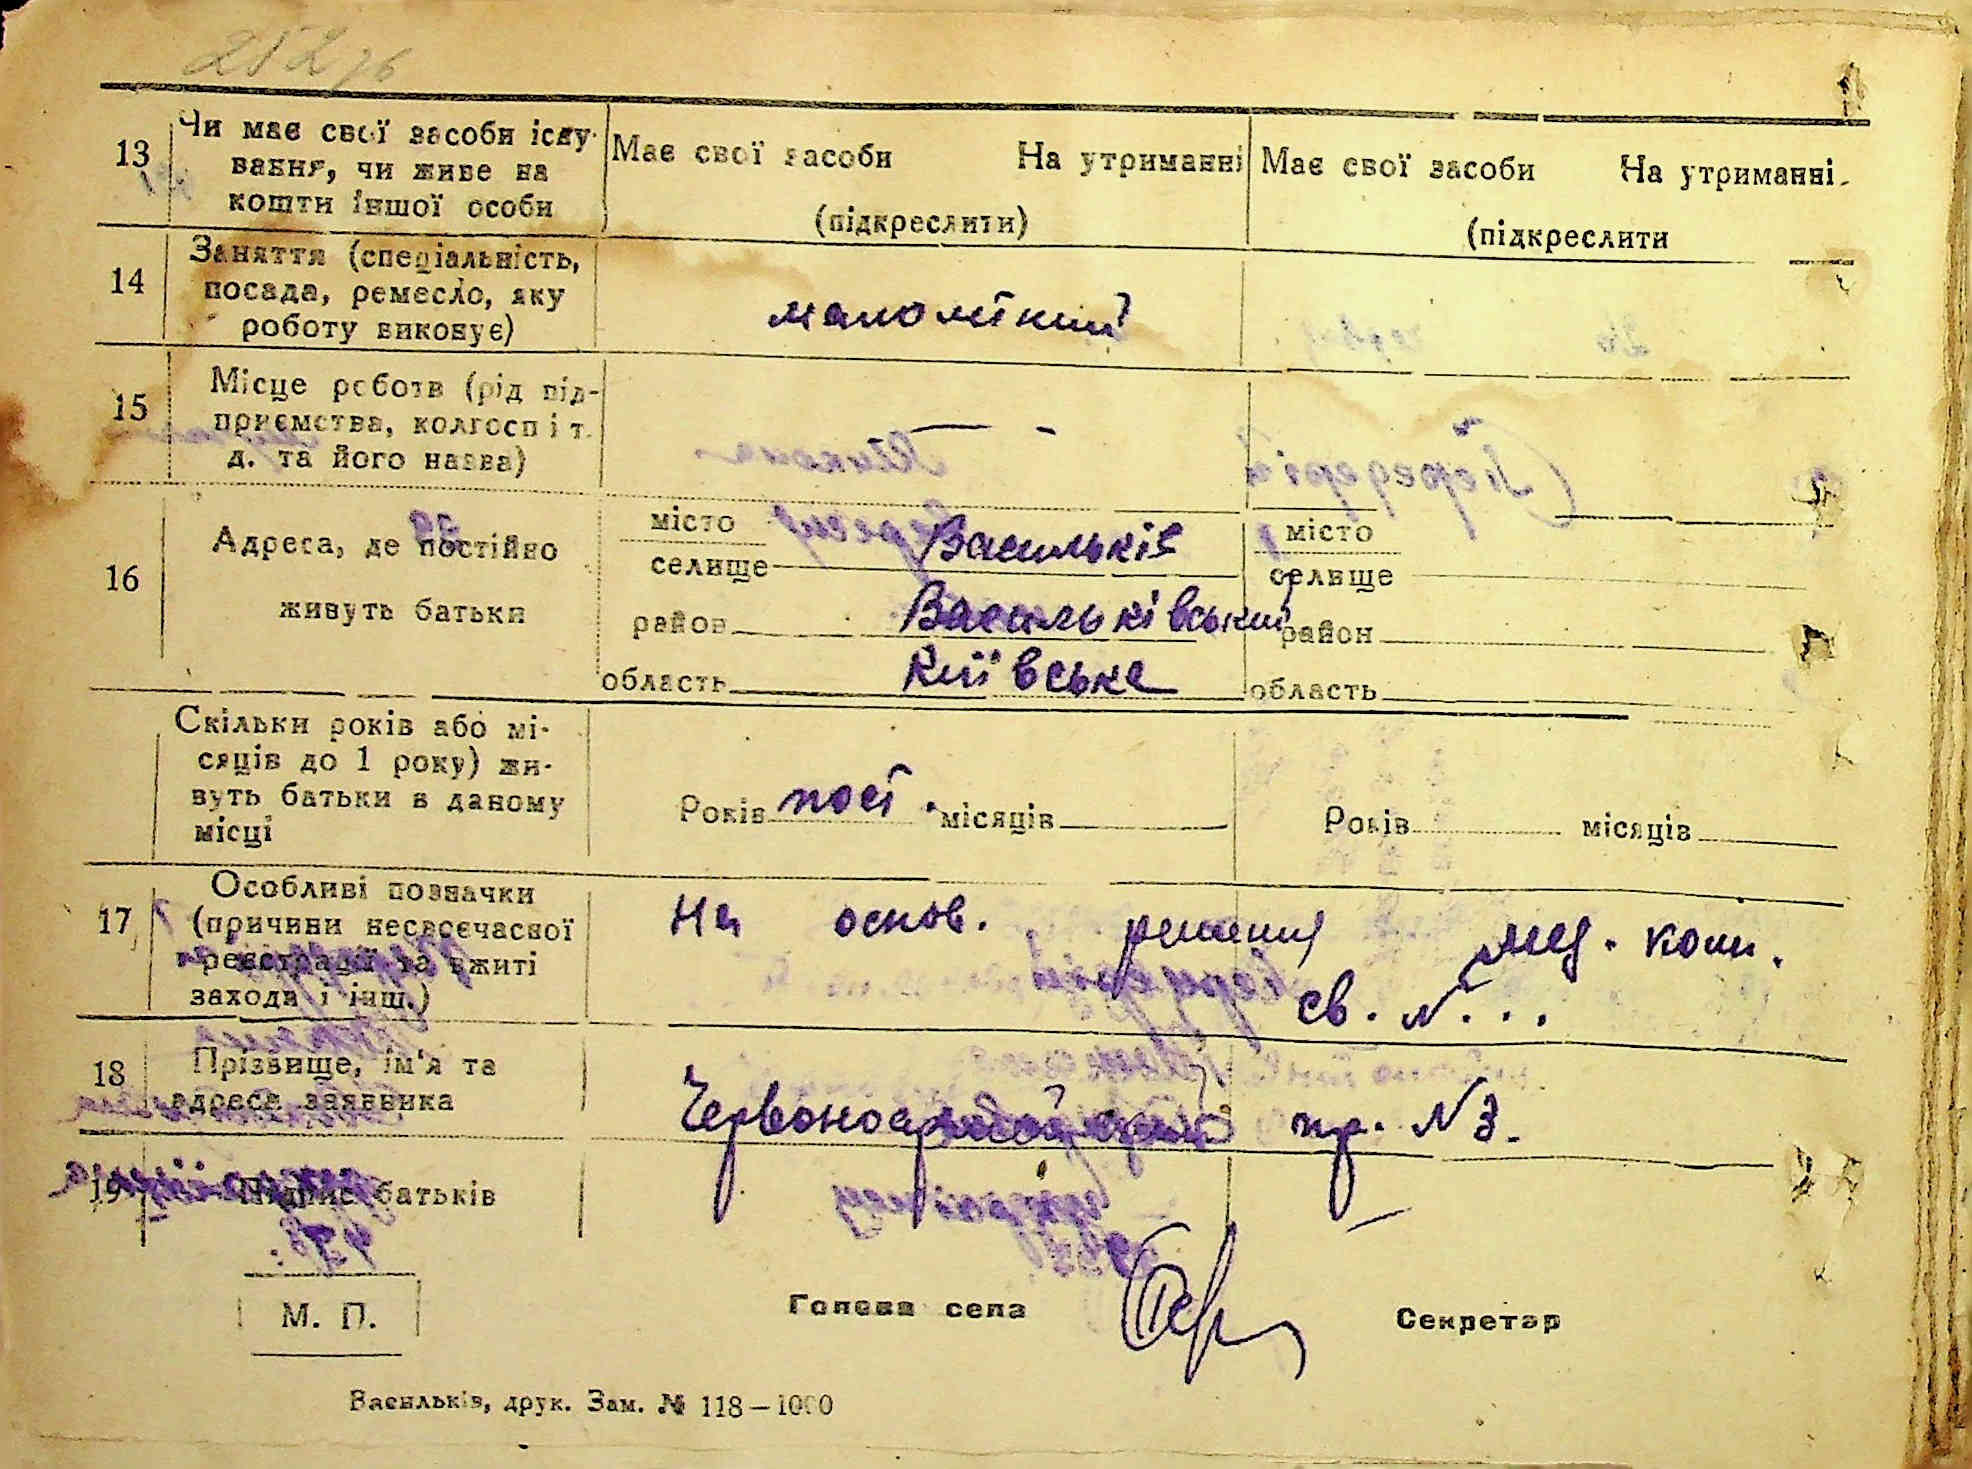 252 зв
13 Чи має свої засоби існу-
вання, чи живе на
кошти іншої особи
Має свої засоби На утриманні
(підкреслити)
Має свої засоби На утриманні
(підкреслити
14 Заняття (спеціальність,
посада, ремесло, яку
роботу виконує)
малолітний
15 Місце роботи (рід під-
приємства, колгосп і т.
д. та його назва)
— -
16 Адреса, де постійно
живуть батьки
місто
селище Васильків
район Васильківський
область Київське
місто
селище
район
область
Скільки років або мі-
сяців до 1 року) жи-
вуть батьки в даному
місці
Років пост. місяців
Років місяців
17 Особливі позначки
(причини несвоєчасної
реєстрації та вжиті
заходи і інш.)
На основ. решения мед. ком.
св. №...
18 Прізвище, ім'я та
адреса заявника
пр. №3.
19 Підпис батьків
М. П.
Голова села
Секретар
Васильків, друк. Зам. № 118—1000